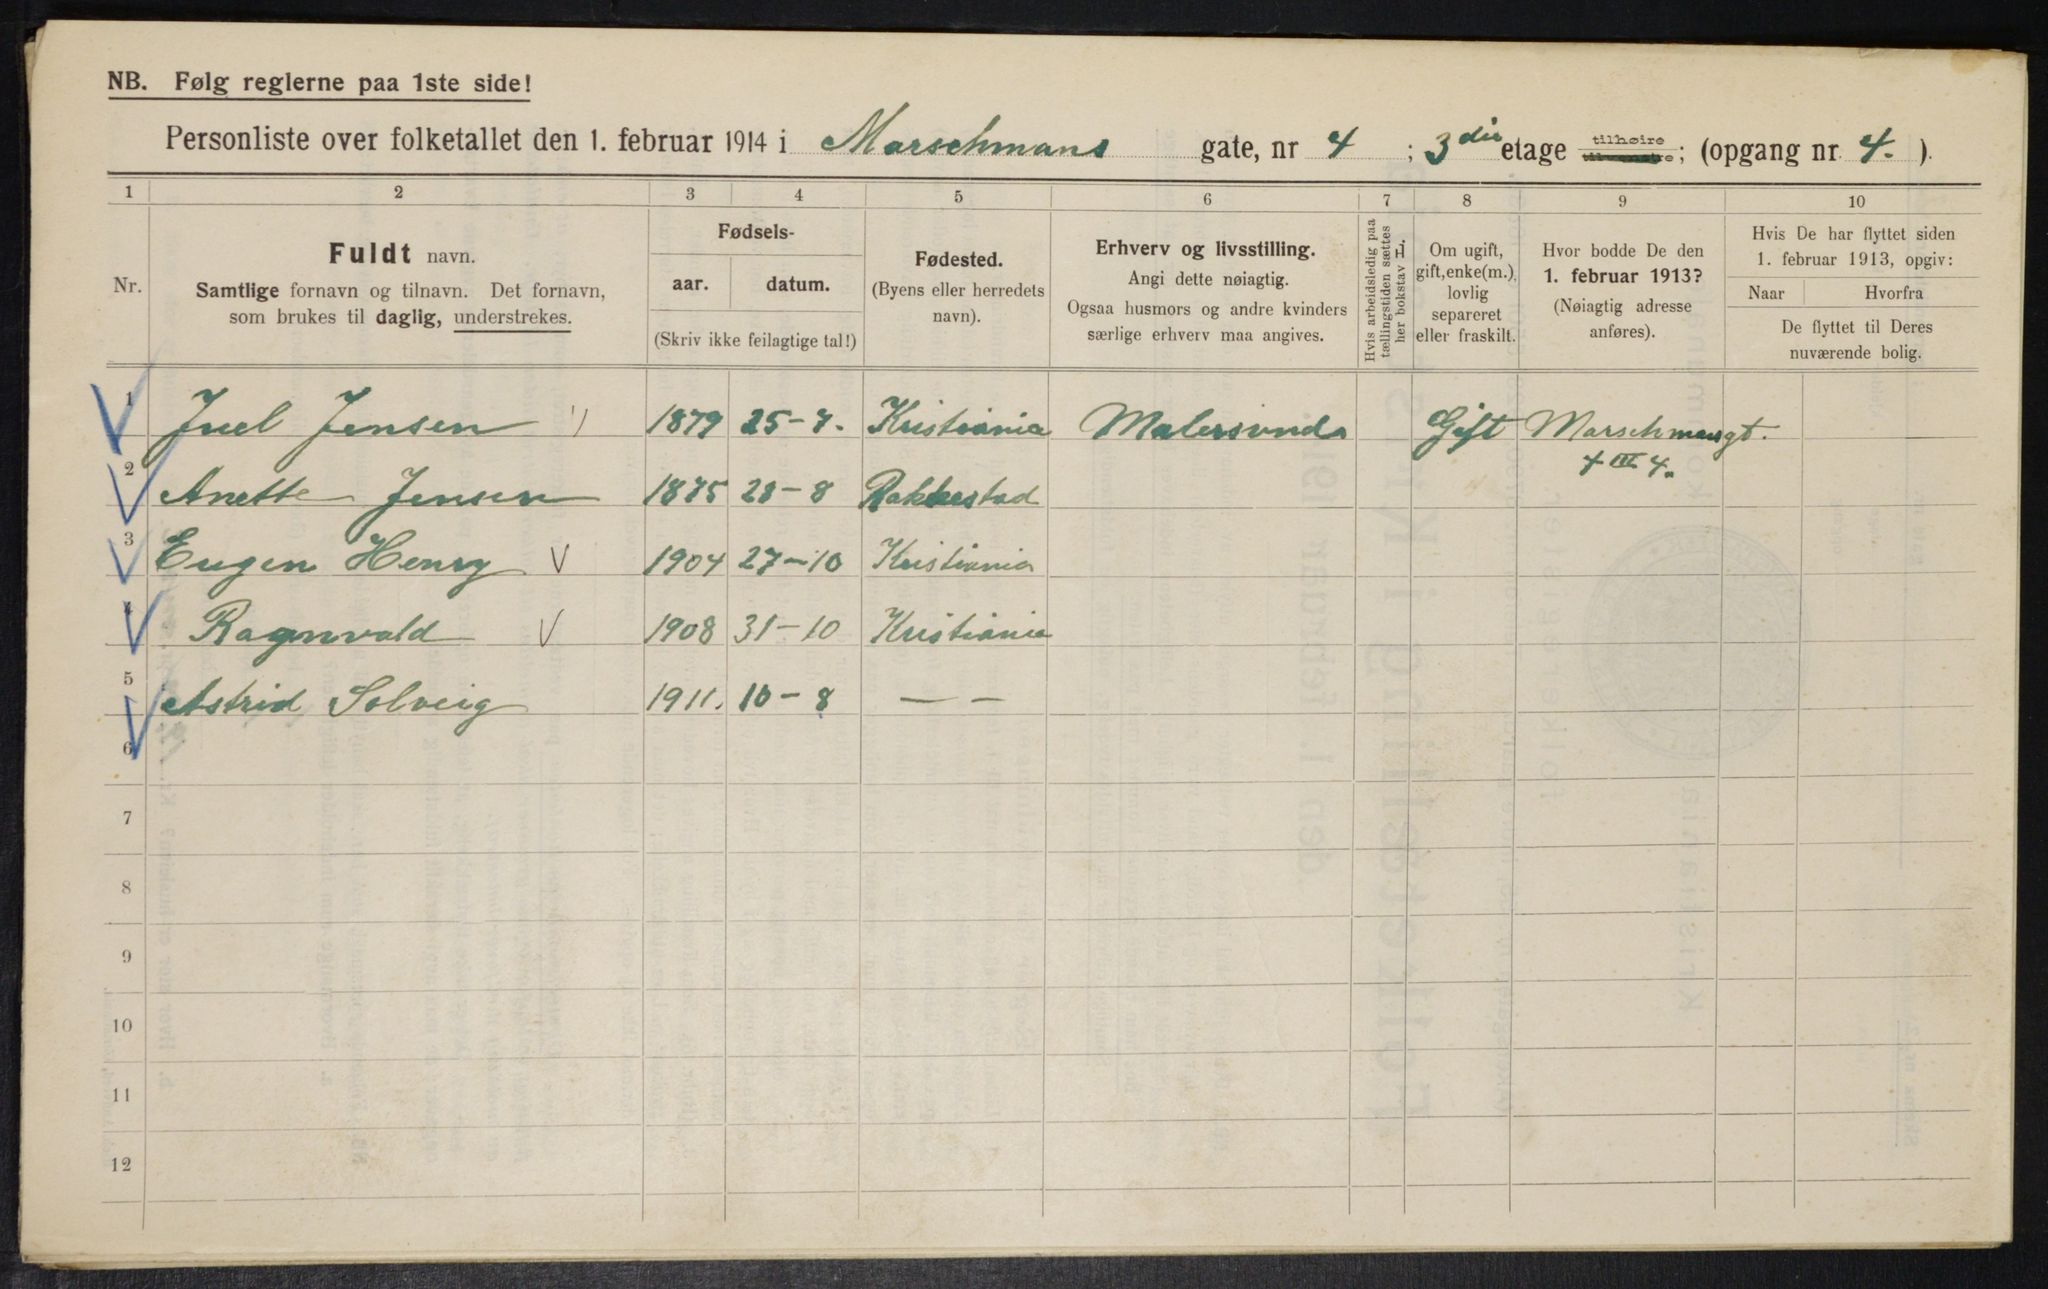 NB. Følg reglerne paa 1ste side!
Personliste over folketallet den 1. februar 1914 i Marschmans gate, nr 4 ; 3die etage tilhøire ; (opgang nr 4. ).
1 2 3 4 5 6 7 8 9 10
Nr.
Fuldt navn.
Samtlige fornavn og tilnavn. Det fornavn,
som brukes til daglig, understrekes.
Fødsels-
aar. datum.
(Skriv ikke feilagtige tal!)
Fødested.
(Byens eller herredets
navn).
Erhverv og livsstilling.
Angi dette nøiagtig.
Ogsaa husmors og andre kvinders
særlige erhverv maa angives.
Hvis arbeidsledig paa
tællingstiden sættes
her bokstav L.
Om ugift,
gift, enke(m.),
lovlig
separeret
eller fraskilt.
Hvor bodde De den
1. februar 1913?
(Nøiagtig adresse
anføres).
Hvis De har flyttet siden
1. februar 1913, opgiv:
Naar Hvorfra
De flyttet til Deres
nuværende bolig.
1 Juel Jensen 1879 25-7. Kristiania Malersvend Gift Marschmansgt.
4 III 4.
2 Anette Jensen 1875 28-8 Rakkestad
3 Eugen Henry 1904 27-10 Kristiania
4 Ragnvald 1908 31-10 Kristiania
5 Astrid Solveig 1911. 10-8 — —
6
7
8
9
10
11
12